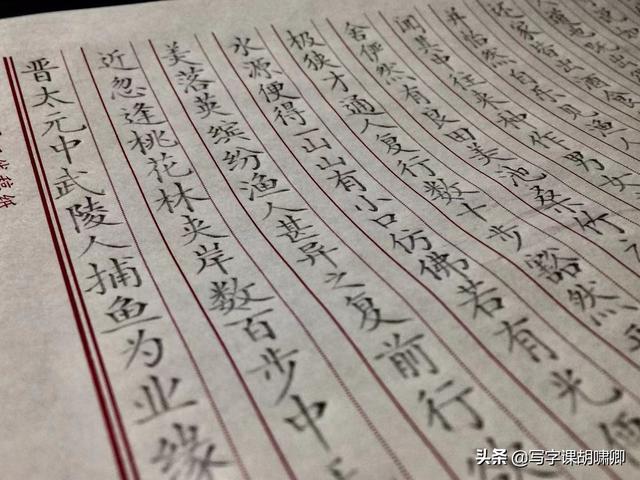 晋太元中武陵人捕鱼为业缘
近忽逢桃花林夹岸数百步中
美落英缤纷渔人甚异之复前行欲
水源便得一山山有小口仿佛若有光便
极狭才通人复行数十步豁然
舍俨然有良田美池桑竹之
闻其中往来种作男女
并怡然自乐见渔人
家皆出酒食
头条 @写字课胡啸卿